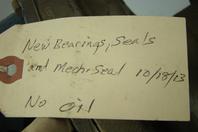 New Bearings, Seals
and Mech. Seal 10/18/13
No oil